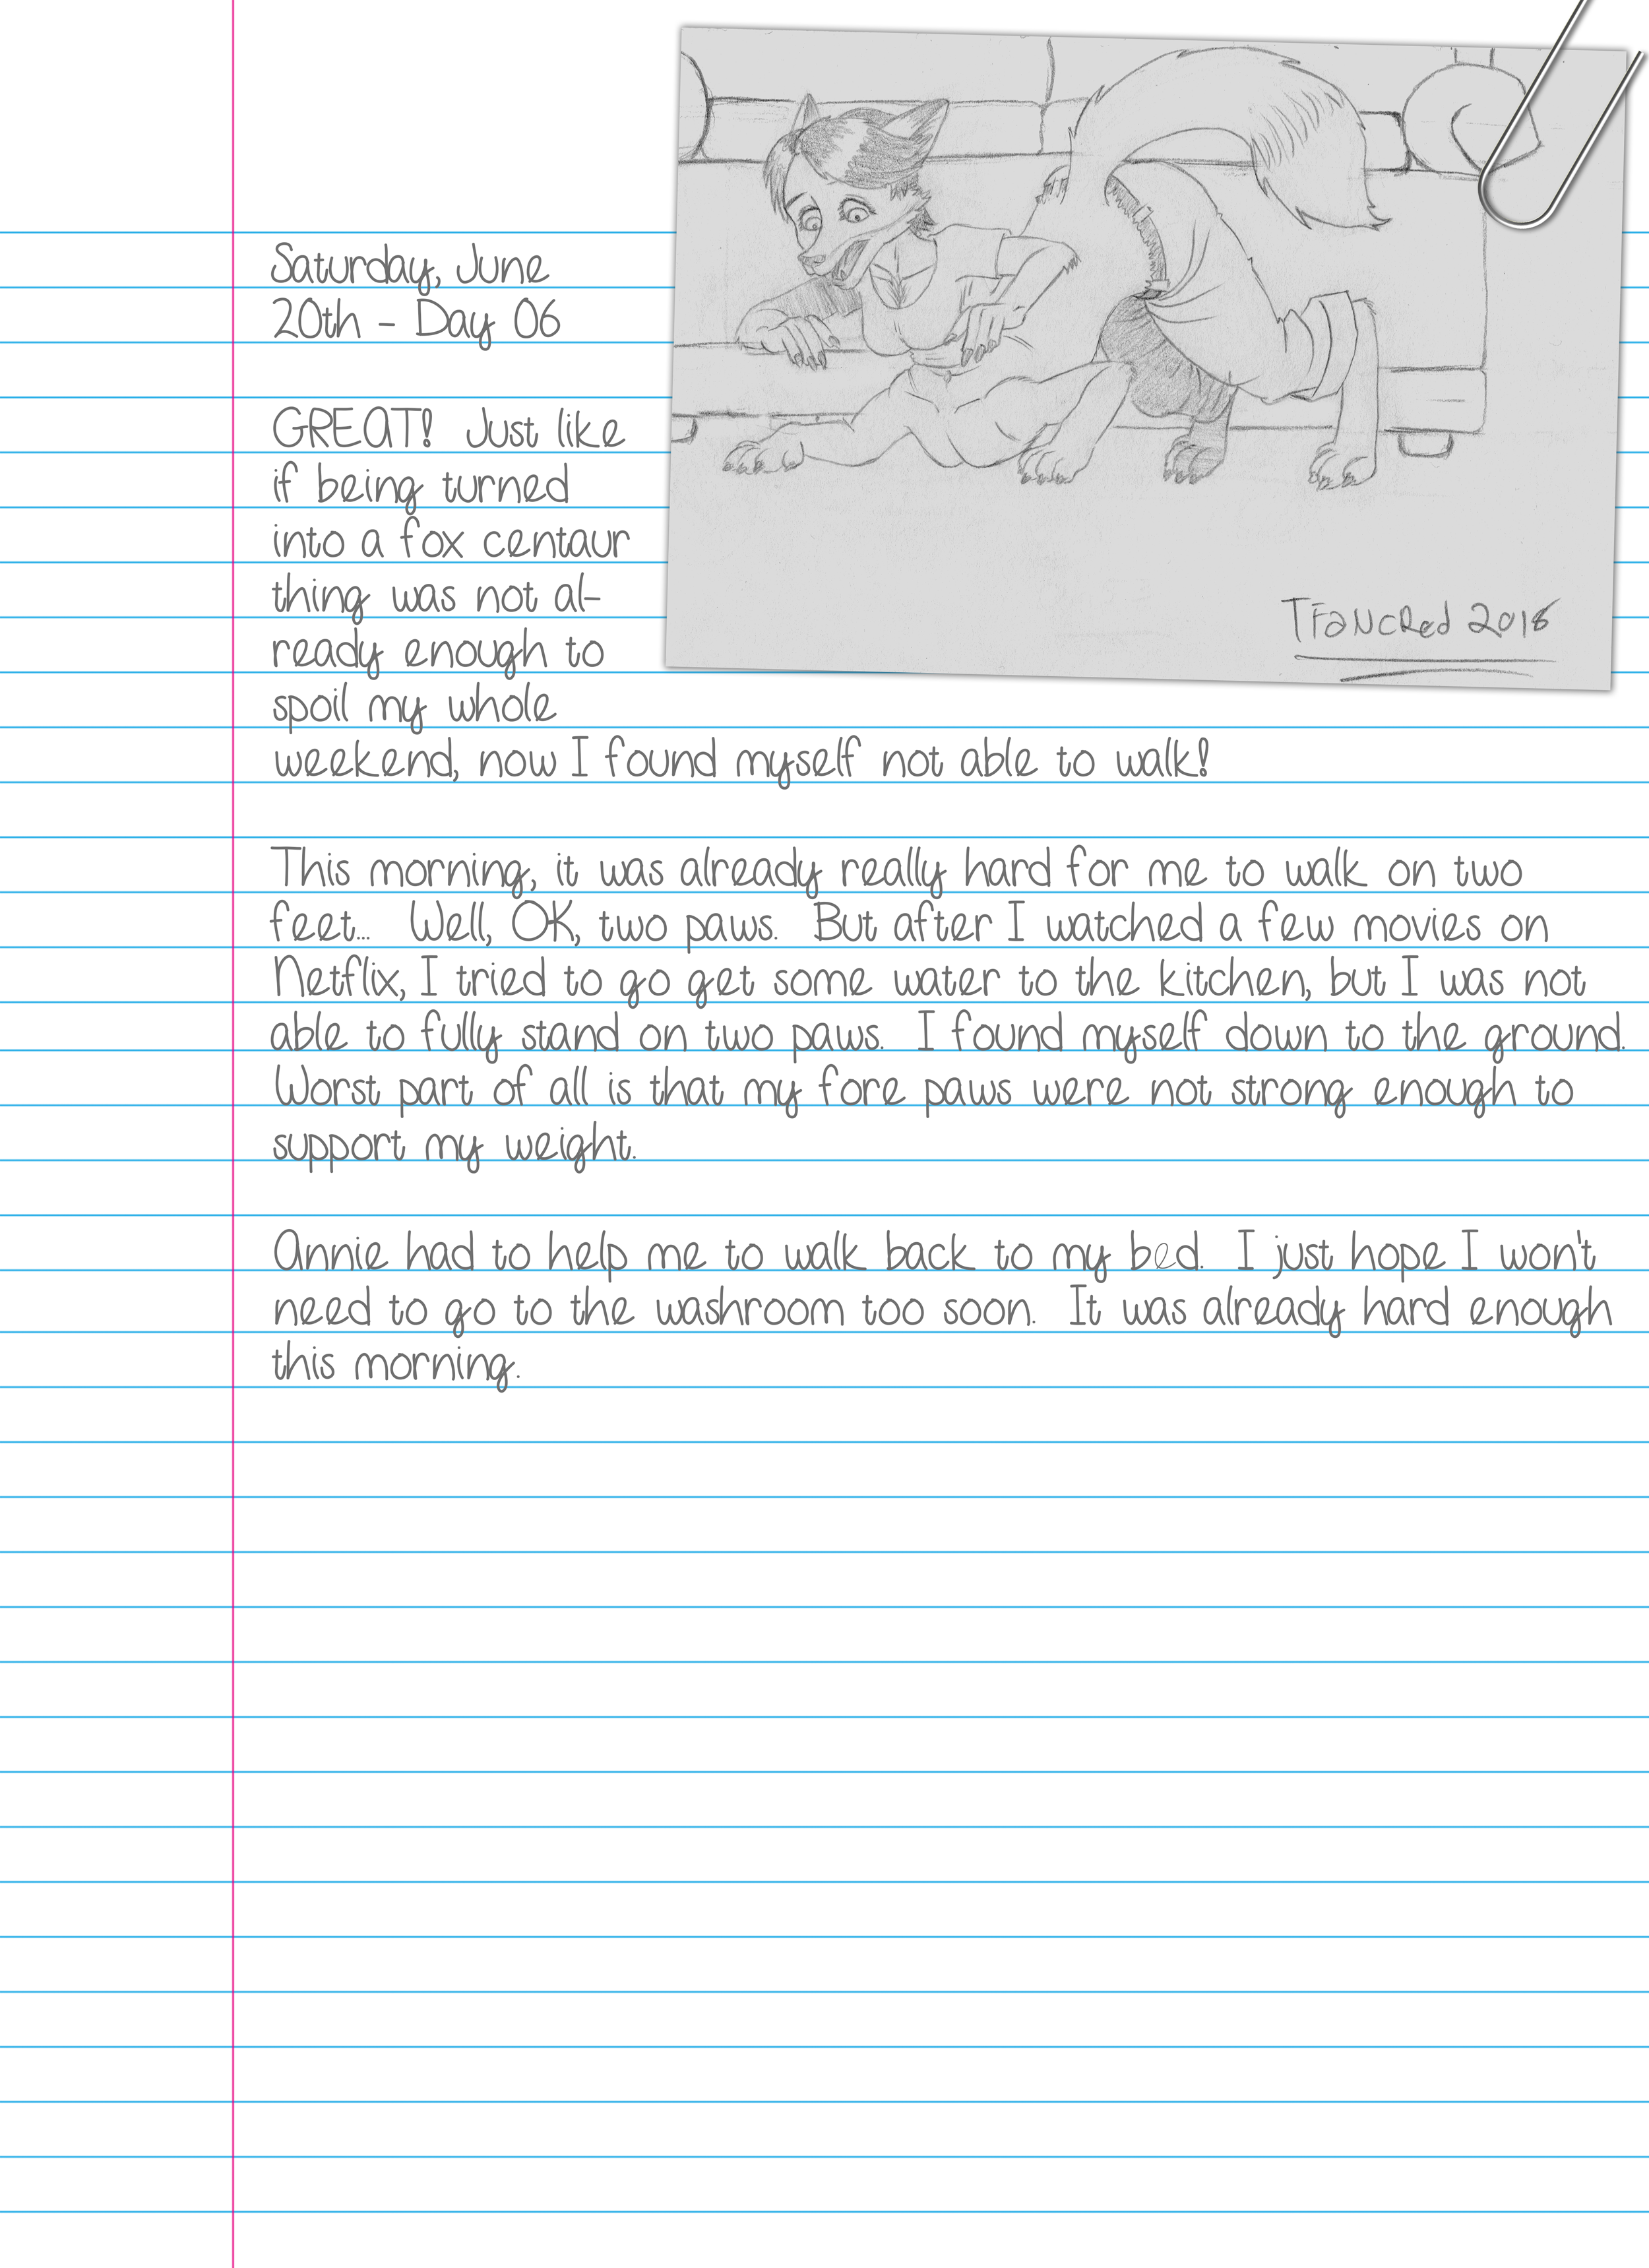 Saturday, June
20th - Day 06
GREAT! Just like
if being turned
into a fox centaur
thing was not al-
ready enough to
spoil my whole
weekend, now I found myself not able to walk!
This morning, it was already really hard for me to walk on two
feet... Well, OK, two paws. But after I watched a few movies on
Netflix, I tried to go get some water to the kitchen, but I was not
able to fully stand on two paws. I found myself down to the ground.
Worst part of all is that my fore paws were not strong enough to
support my weight.
Annie had to help me to walk back to my bed. I just hope I won't
need to go to the washroom too soon. It was already hard enough
this morning.
TFancRed 2018